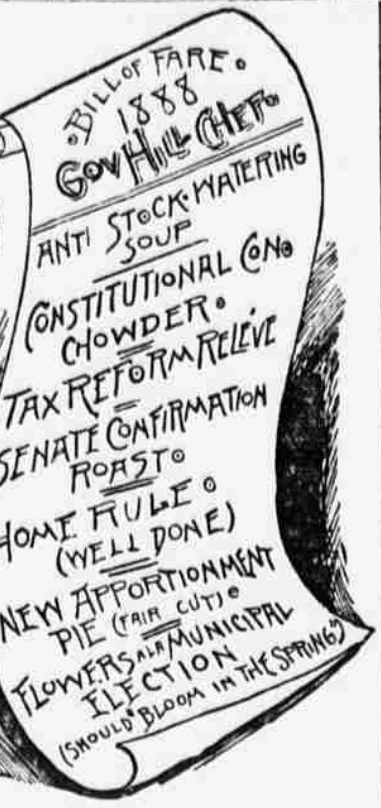 BILL OF FARE.
1888
GOV HILL CHEF.
ANTI STOCK-WATERING
SOUP
CONSTITUTIONAL CON.
CHOWDER.
TAX REFORM RELÉVE
SENATE CONFIRMATION
ROAST.
HOME RULE.
(WELL DONE)
NEW APPORTIONMENT
PIE (FAIR CUT).
FLOWERS ALA MUNICIPAL
ELECTION
(SHOULD "BLOOM IN THE SPRING")